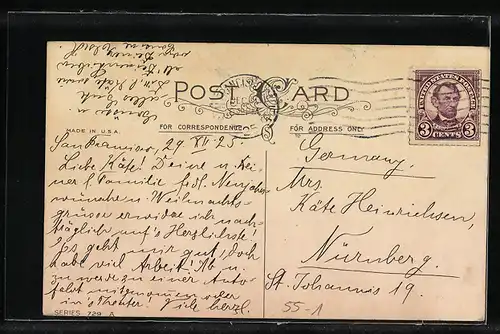 POST CARD
MADE IN U.S.A.
FOR CORRESPONDENCE
FOR ADDRESS ONLY
UNITED STATES POSTAGE
3 CENTS 3
San Francisco 29. XII. 25.
Liebe Käte! Deine u. Dei-
ner l. Familie frdl. Neujahrs
wünsche u. Weihnachts
grüsse erwidre ich nach-
träglich auf's Herzlichste!
Es geht mir gut, doch
habe viel Arbeit! Ab u.
zu werde zu einer Auto-
fahrt mitgenommen oder
in's Theater! Viele herzl.
Grüsse u.
alles Gute
Germany.
Mrs.
Käte Heinrichsen,
Nürnberg.
St. Johannis 19.
55-1
SERIES 729 A